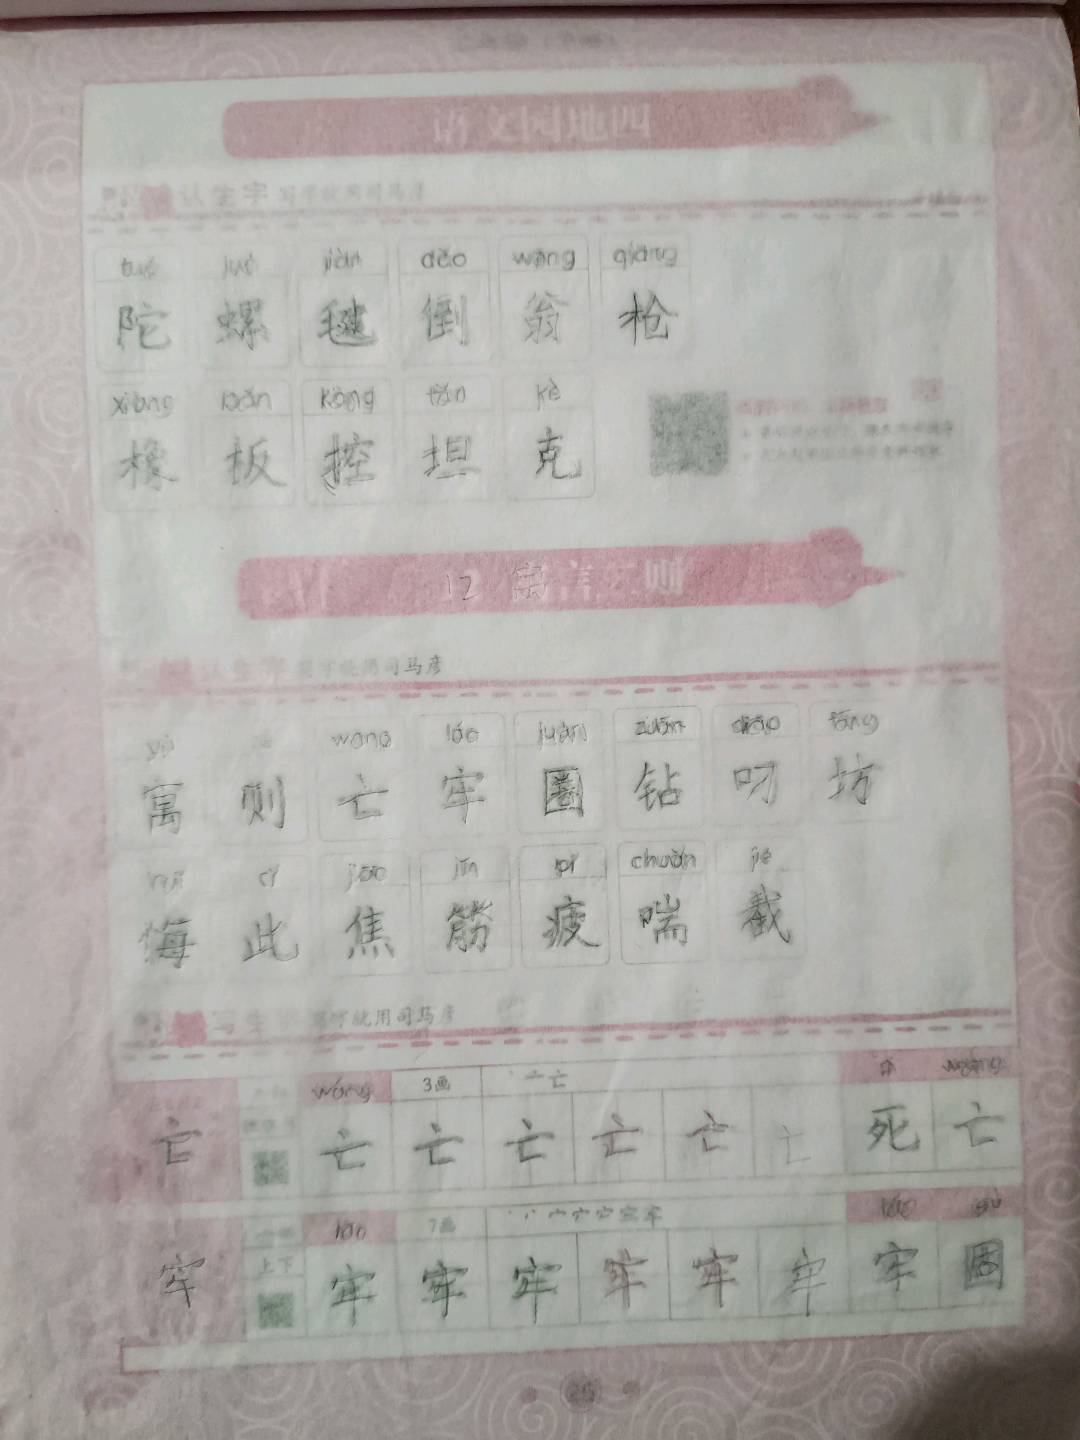 语文园地四
认生字 写字就用司马彦
tuó luó jiàn dǎo wēng qiāng
陀 螺 毽 倒 翁 枪
xiàng bǎn kòng tǎn kè
橡 板 控 坦 克
12 寓言二则
认生字 写字就用司马彦
yù zé wáng láo juàn zuān diāo fāng
寓 则 亡 牢 圈 钻 叼 坊
huǐ cǐ jiāo jīn pí chuǎn jié
悔 此 焦 筋 疲 喘 截
写生字 写字就用司马彦
wáng 3画 wáng
亡 亡 亡 亡 亡 亡 亡 死 亡
láo 7画 láo gù
上下
牢 牢 牢 牢 牢 牢 牢 牢 固